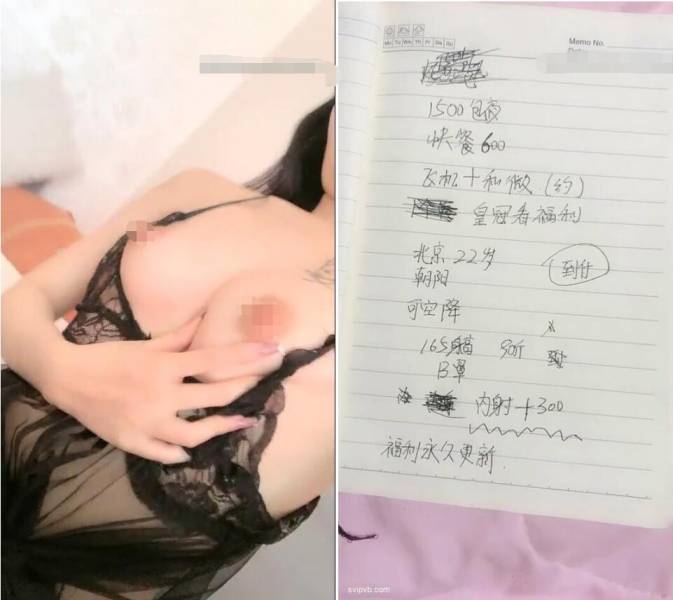 Memo No.
Mo Tu We Th Fr Sa Su
1500包夜
快餐600
飞机+和做(约)
皇冠看福利
北京22岁
到付
朝阳
可空降
165身高 90斤
B罩
内射+300
福利永久更新
svipvb.com